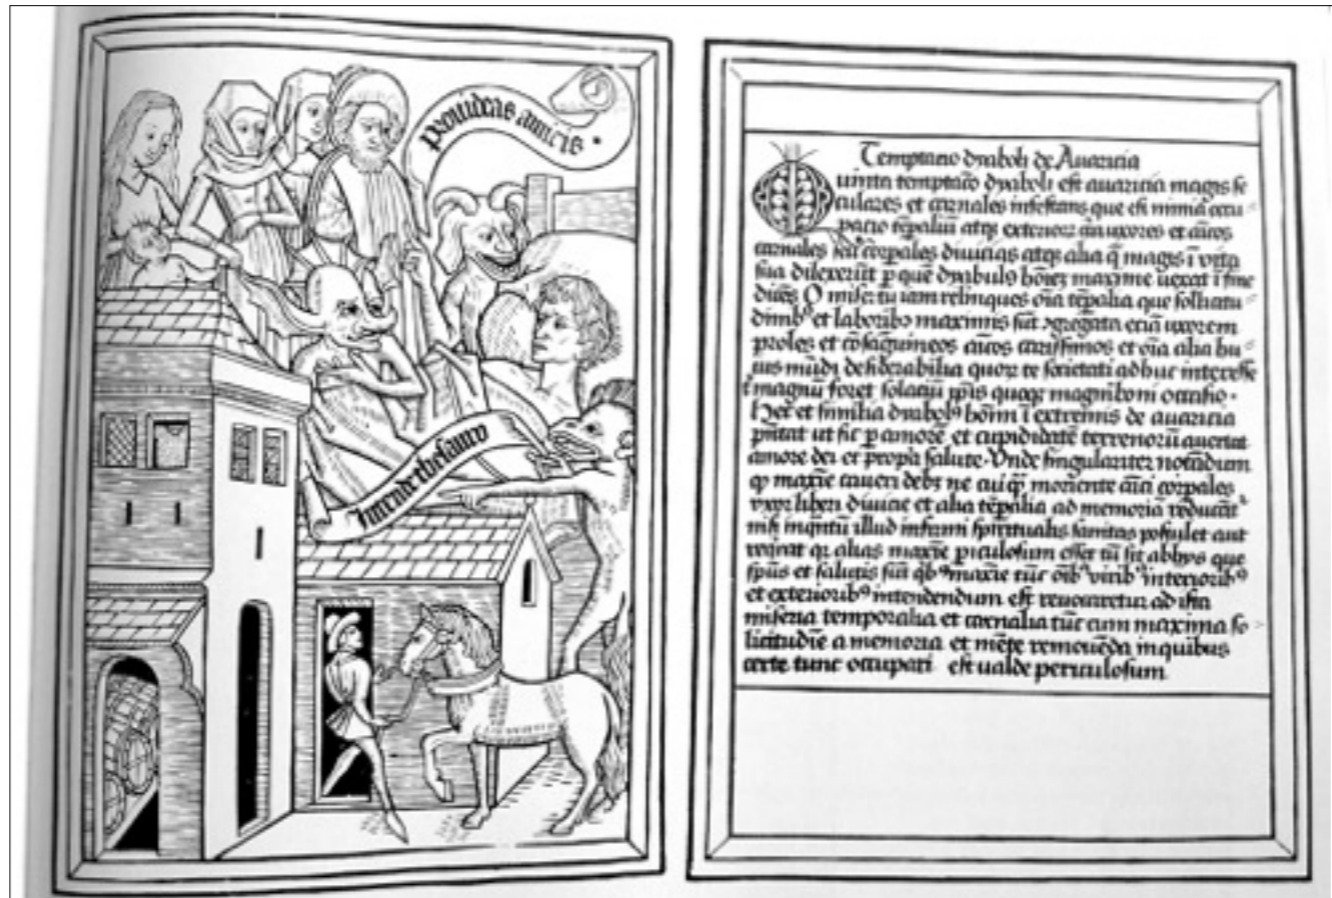 prouideas amicis.
Intende thesauro
Temptatio dyaboli de Auaricia
Quinta temptac̄o dyaboli est auaricia magis se
culares et carnales infestans que est nimia occu
pacio tēpaliū atqȝ exterioꝝ
carnales seu corpales diuicias atqȝ alia q̄ magis ī vita
sua dilexerūt p que dyabulꝰ hoīeȝ maxime uexat ī fine
dicēs O miser tu iam relinques oīa tēpalia que sollicitu
dinibꝰ et laboribꝰ maximis sūt ꝯgregata eciā uxorem
proles et cōsāguineos carissimos et oīa alia hu
ius mūdi desiderabilia quoꝝ te societati adhuc interesse
magnū foret solaciū ipīs quoqȝ magni boni occasio.
Hec et similia dyabolꝰ hōini ī extremis de auaricia
pn̄tat ut sic p amorē et cupiditatē terrenorū auertat
amore dei et propria salute. Unde singulariter notādum
qꝫ maxīe caueri debet ne cuiqꝫ morienti amici corpales
vxor liberi diuicie et alia tēpalia ad memoriā reducant̄
nisi inqn̄tū illud infirmi spiritualis sanitas postulet aut
requirat qꝛ alias maxīe piculosum esset cū sic ab hys que
spūs et salutis sūt qbꝰ maxīe tūc oībꝰ viribꝰ interioribꝰ
et exterioribꝰ intendendum est reuocaretur ad ista
miseria temporalia et carnalia tūc cum maxima so
licitudīe a memoria et mēte remouēda in quibus
certe tunc occupari est ualde periculosum